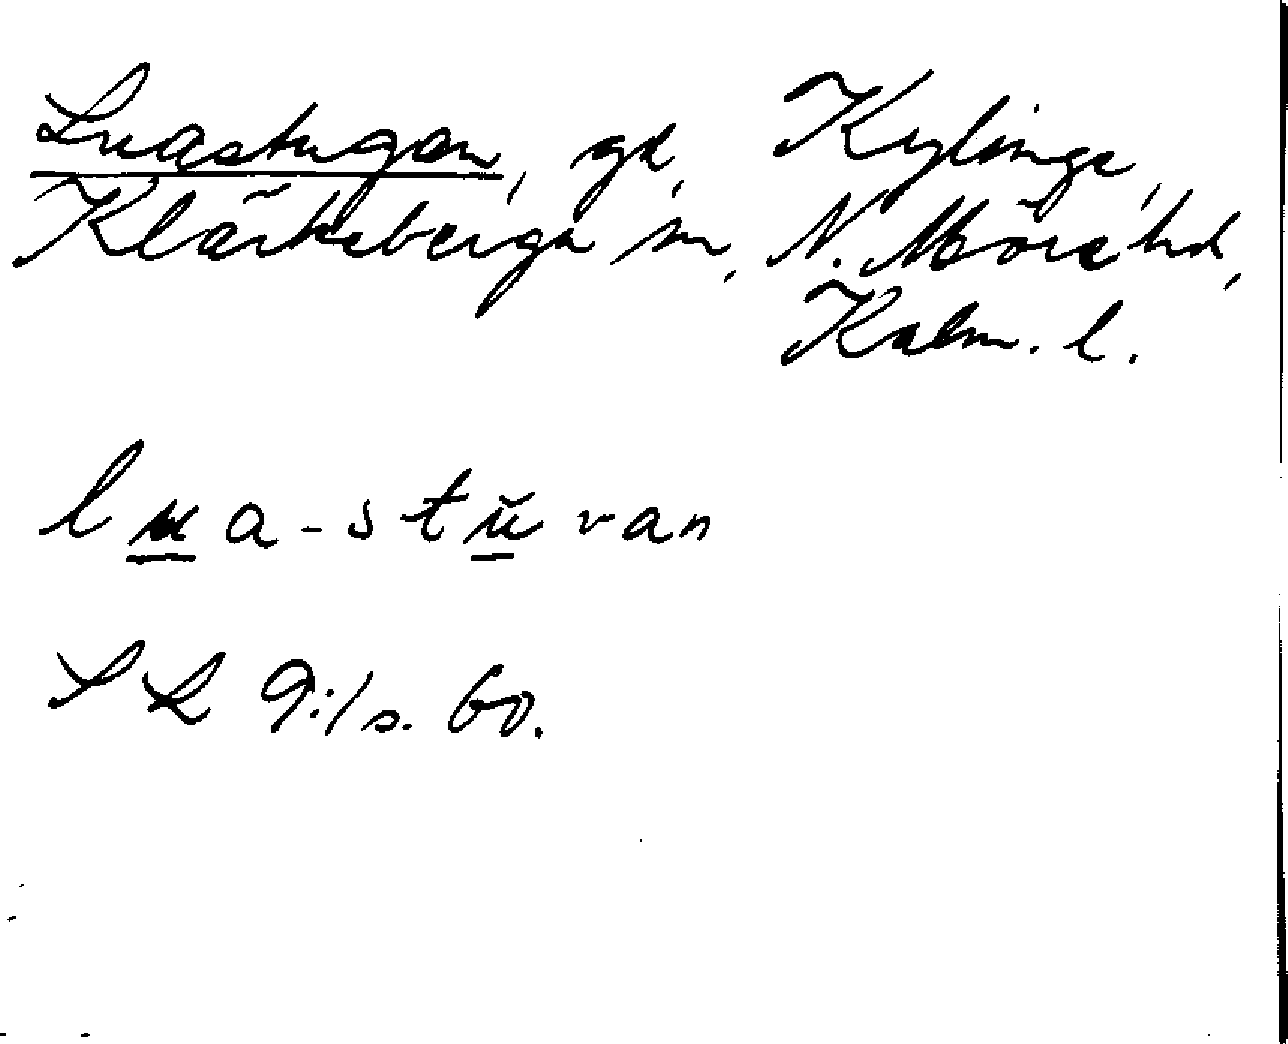 Luastugan, gd, Kylinge,
Kläckeberga sn, N. Möre hd,
Kalm. l.
lua-stŭvan
SL 9:1 s. 60.